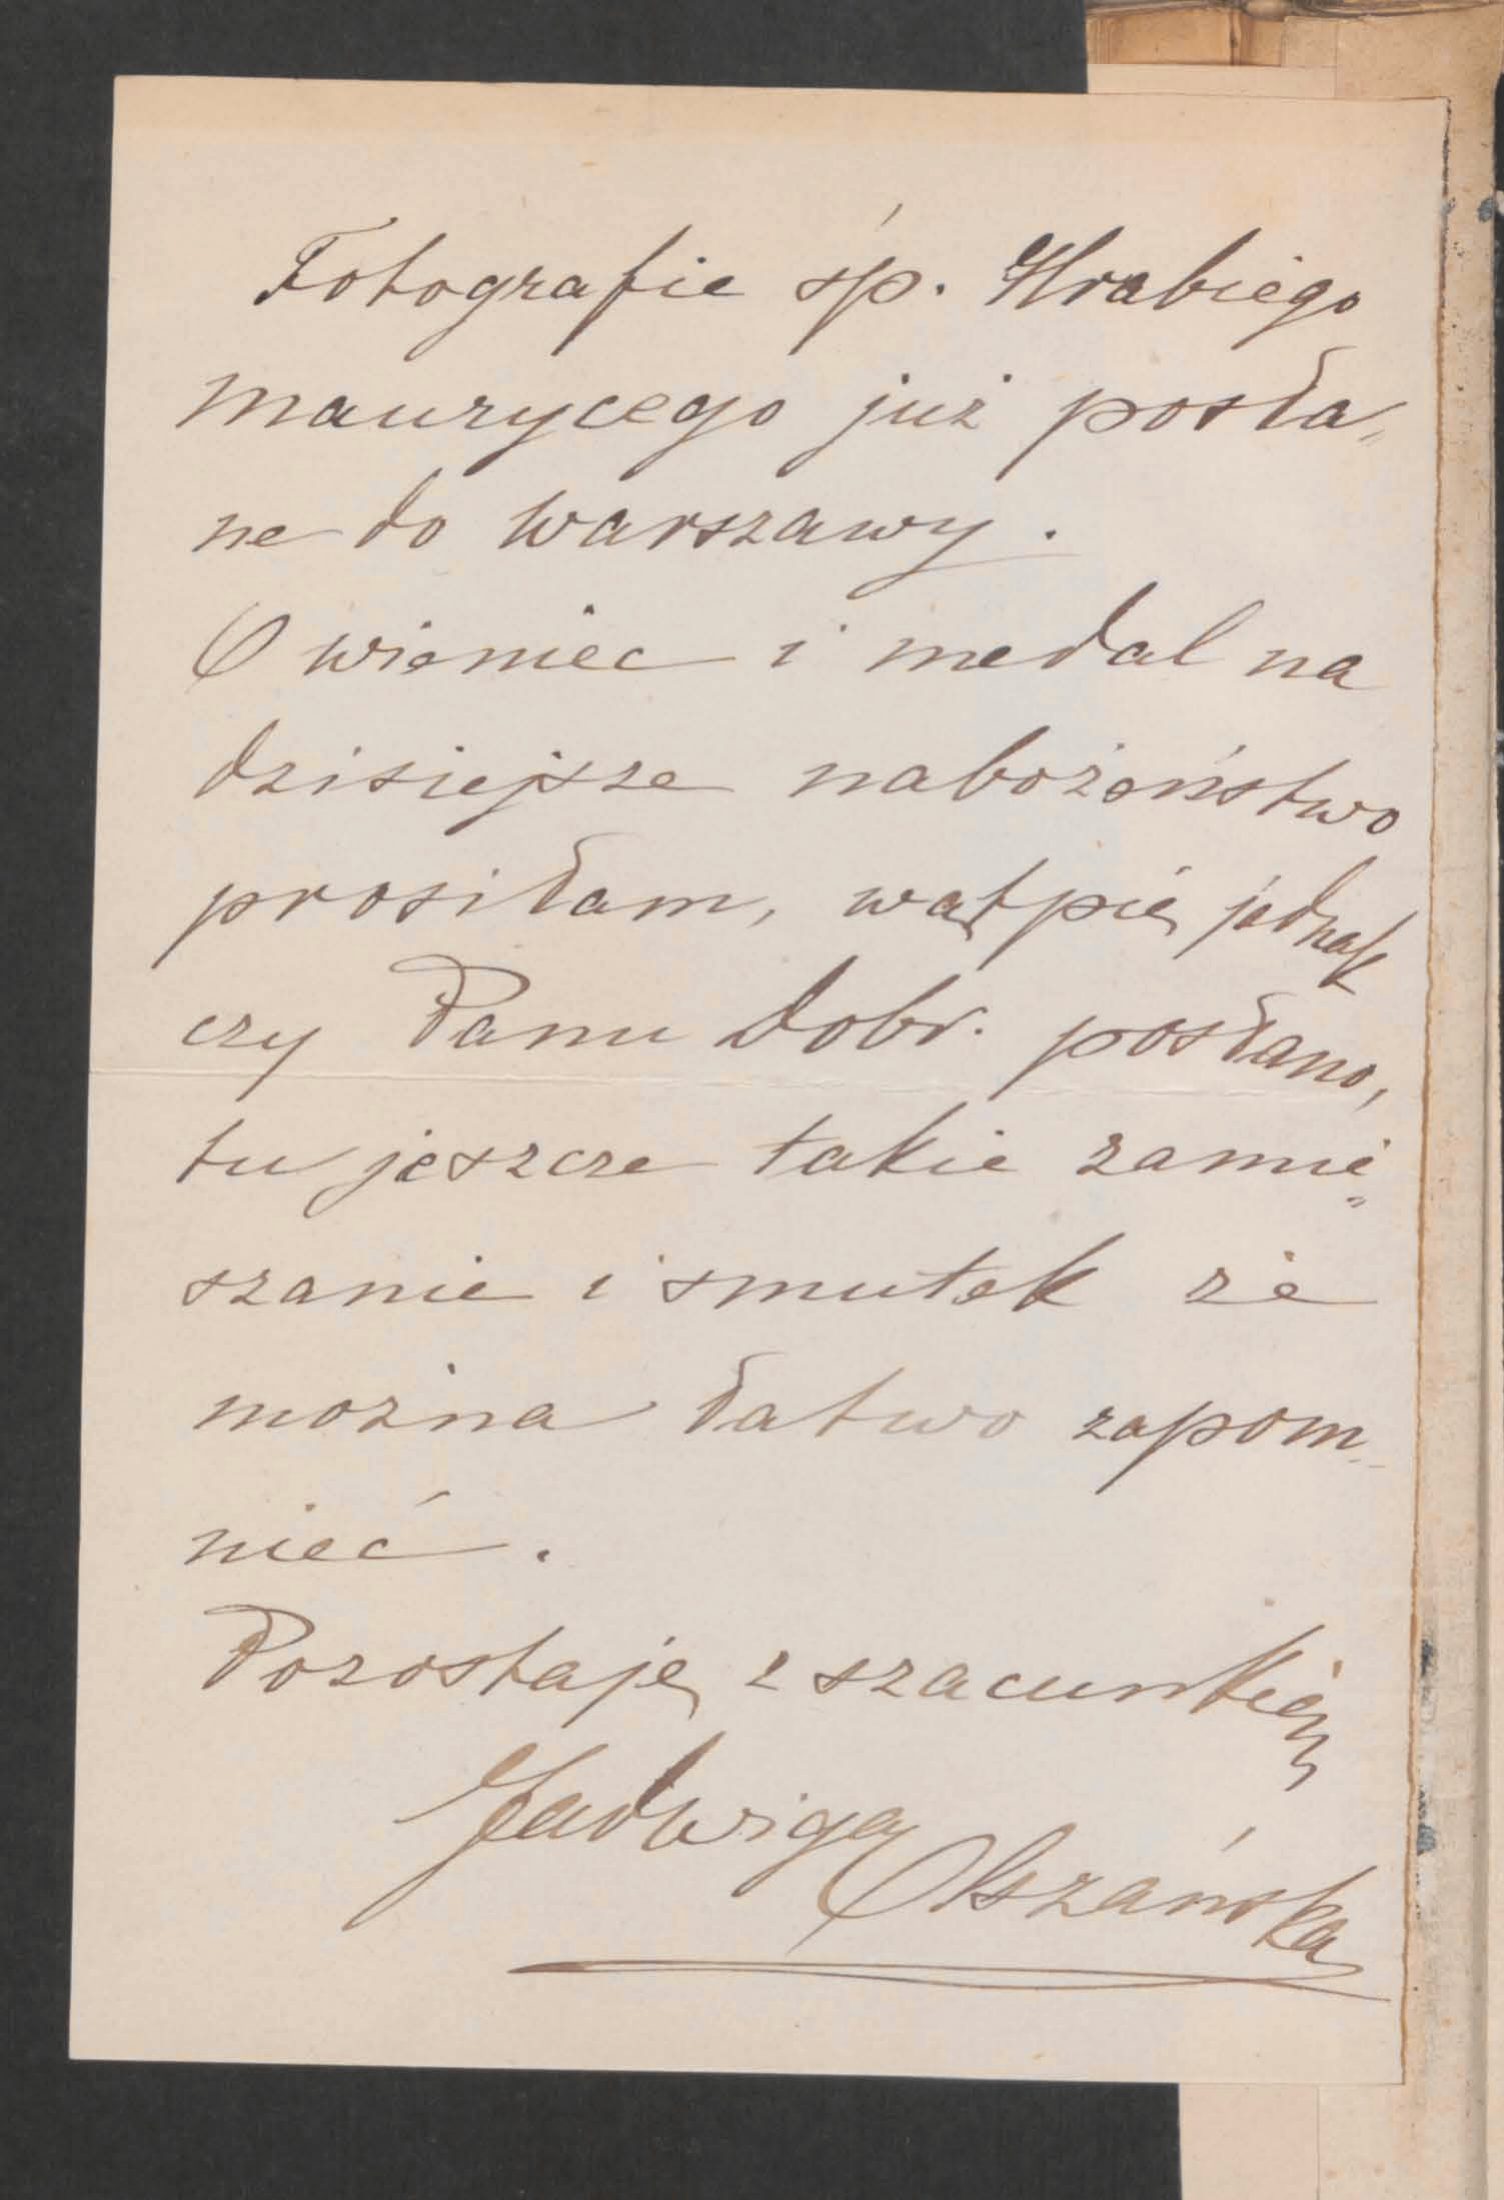 Fotografie śp. Hrabiego
Maurycego już posła„
ne do Warszawy.
O wieniec i medal na
dzisiejsze nabożeństwo
prosiłam, wątpię jednak
czy Panu Dobr. posłano,
tu jeszcze takie zamię„
szanie i smutek że
można łatwo zapom„
nieć.
Pozostaję z szacunkiem
Jadwiga
Olszańska